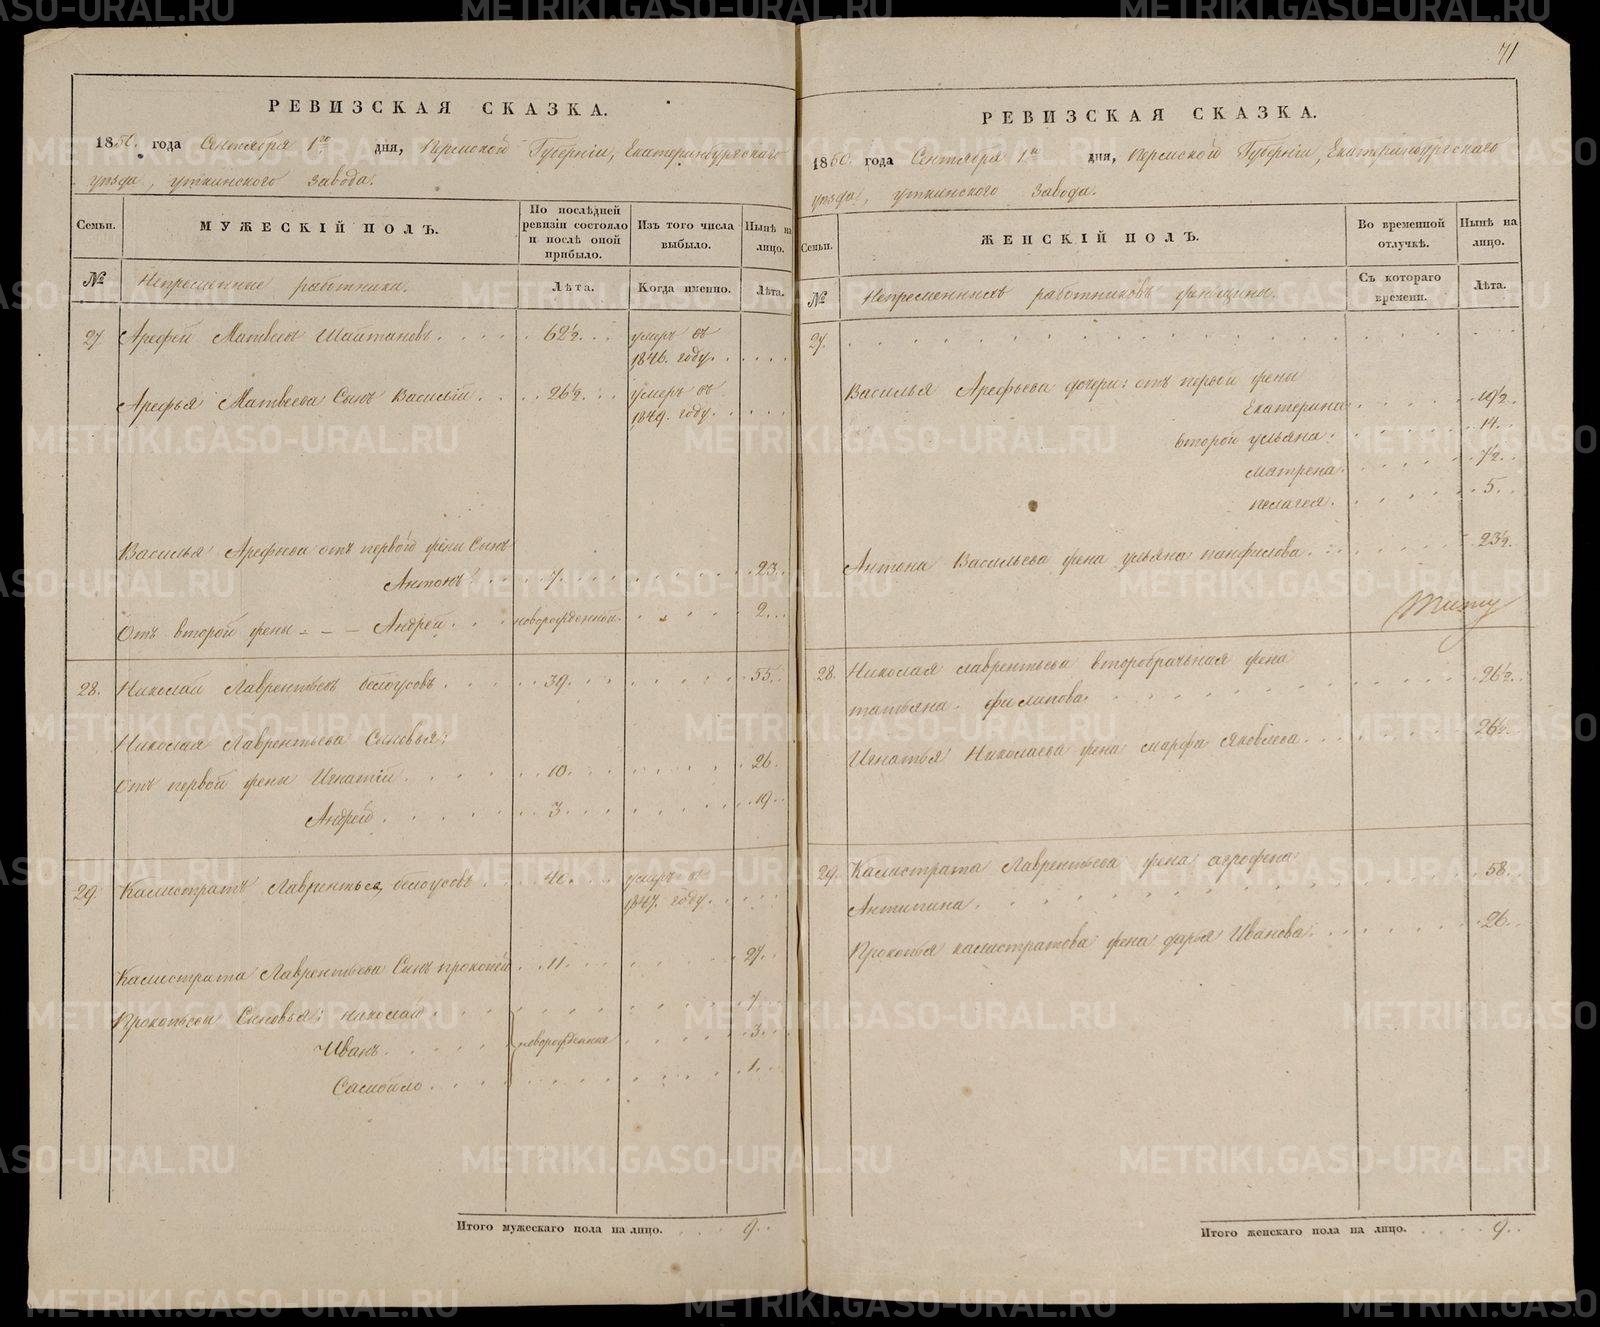 71
РЕВИЗСКАЯ СКАЗКА.
1850. года Сентября 1го дня, Пермской Губерніи, Екатеринбургскаго
уѣзда, уткинского завода.
Семьи.
МУЖЕСКІЙ ПОЛЪ.
По послѣдней ревизіи состояло и послѣ оной прибыло.
Изъ того числа выбыло.
Нынѣ на лицо.
№
Непременные работники.
Лѣта.
Когда именно.
Лѣта.
27. Арефей Матвеевъ Шайтановъ. 62½. умеръ въ
1846. году.
Арефья Матвеева Сынъ Василій. 26½. умеръ въ
1849. году.
Василья Арефьева отъ первой жены Сынъ
Антонъ. 7. 23.
Отъ второй жены - - - Андрей. новорожденной. 2.
28. Николай Лаврентьевъ белоусовъ. 39. 55.
Николая Лаврентьева Сыновья:
отъ первой жены Игнатій. 10. 26.
Андрей. 3. 19.
29. Калистратъ Лаврентьевъ белоусовъ. 46. умеръ въ
1847. году.
Калистрата Лаврентьева Сынъ прокопей 11. 27.
Прокопьевы Сыновья: николай. 7.
Иванъ. новорожденные 3.
Самойло. 1.
Итого мужескаго пола на лицо. 9.
РЕВИЗСКАЯ СКАЗКА.
1850. года Сентября 1го дня, Пермской Губерніи, Екатеринбургскаго
уѣзда, уткинского завода.
Семьи.
ЖЕНСКІЙ ПОЛЪ.
Во временной отлучкѣ.
Нынѣ на лицо.
№
Непременныхъ работниковъ женщины.
Съ котораго времени.
Лѣта.
27.
Василья Арефьева дочери: отъ первой жены
Екатерина. 19½.
второй ульяна. 11.
матрена. 7½.
пелагея. 5.
Антона Васильева жена ульяна панфилова. 23½.
28. Николая лаврентьева второбрачьная жена
татьяна филипова. 26½.
Игнатья Николаева жена марфа яковлева. 26½.
29. Калистрата Лаврентьева жена агрофена
Антипина. 58.
Прокопья калистратова жена дарья Иванова. 26.
Итого женскаго пола на лицо. 9.